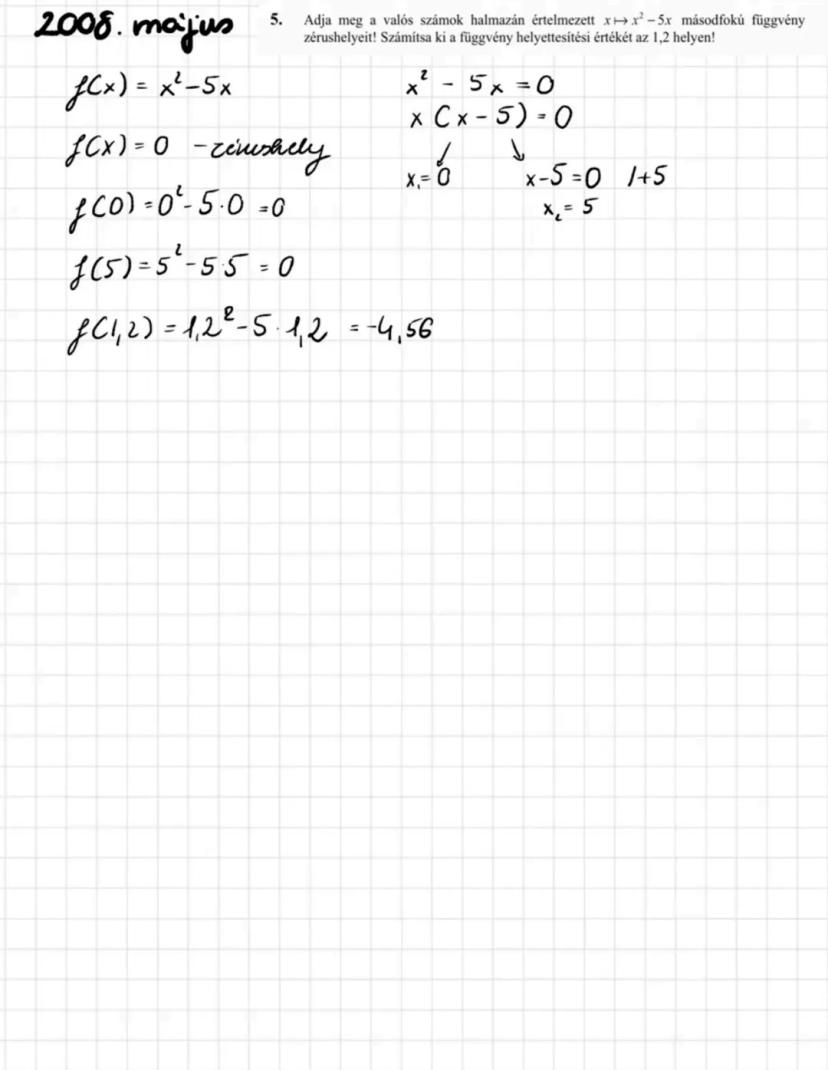 2008. május
5. Adja meg a valós számok halmazán értelmezett x ↦ x² – 5x másodfokú függvény
zérushelyeit! Számítsa ki a függvény helyettesítési értékét az 1,2 helyen!
f(x) = x² – 5x
f(x) = 0 – zérushely
f(0) = 0² – 5·0 = 0
f(5) = 5² – 5·5 = 0
f(1,2) = 1,2² – 5·1,2 = –4,56
x² – 5x = 0
x (x – 5) = 0
x₁ = 0 x – 5 = 0 /+5
x₂ = 5